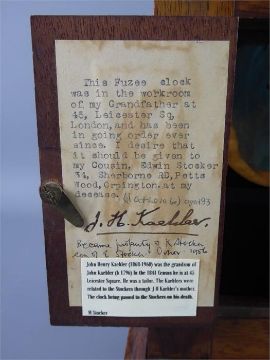 This Fuzee clock
was in the workroom
of my Grandfather at
45, Leicester Sq,
London, and has been
in going order ever
since. I desire that
it should be given to
my Cousin, Edwin Stocker
34, Sherborne RD, Petts
Wood, Orpington. at my
decease.
J. H. Kaehler.
Became property of
Stocker
John Henry Kaehler (1868-1960) was the grandson of
John Kaehler (b 1796) In the 1841 Census he is at 45
Leicester Square. He was a tailor. The Kaehlers were
related to the Stockers through J H Kaehler's mother.
The clock being passed to the Stockers on his death.
M Stocker